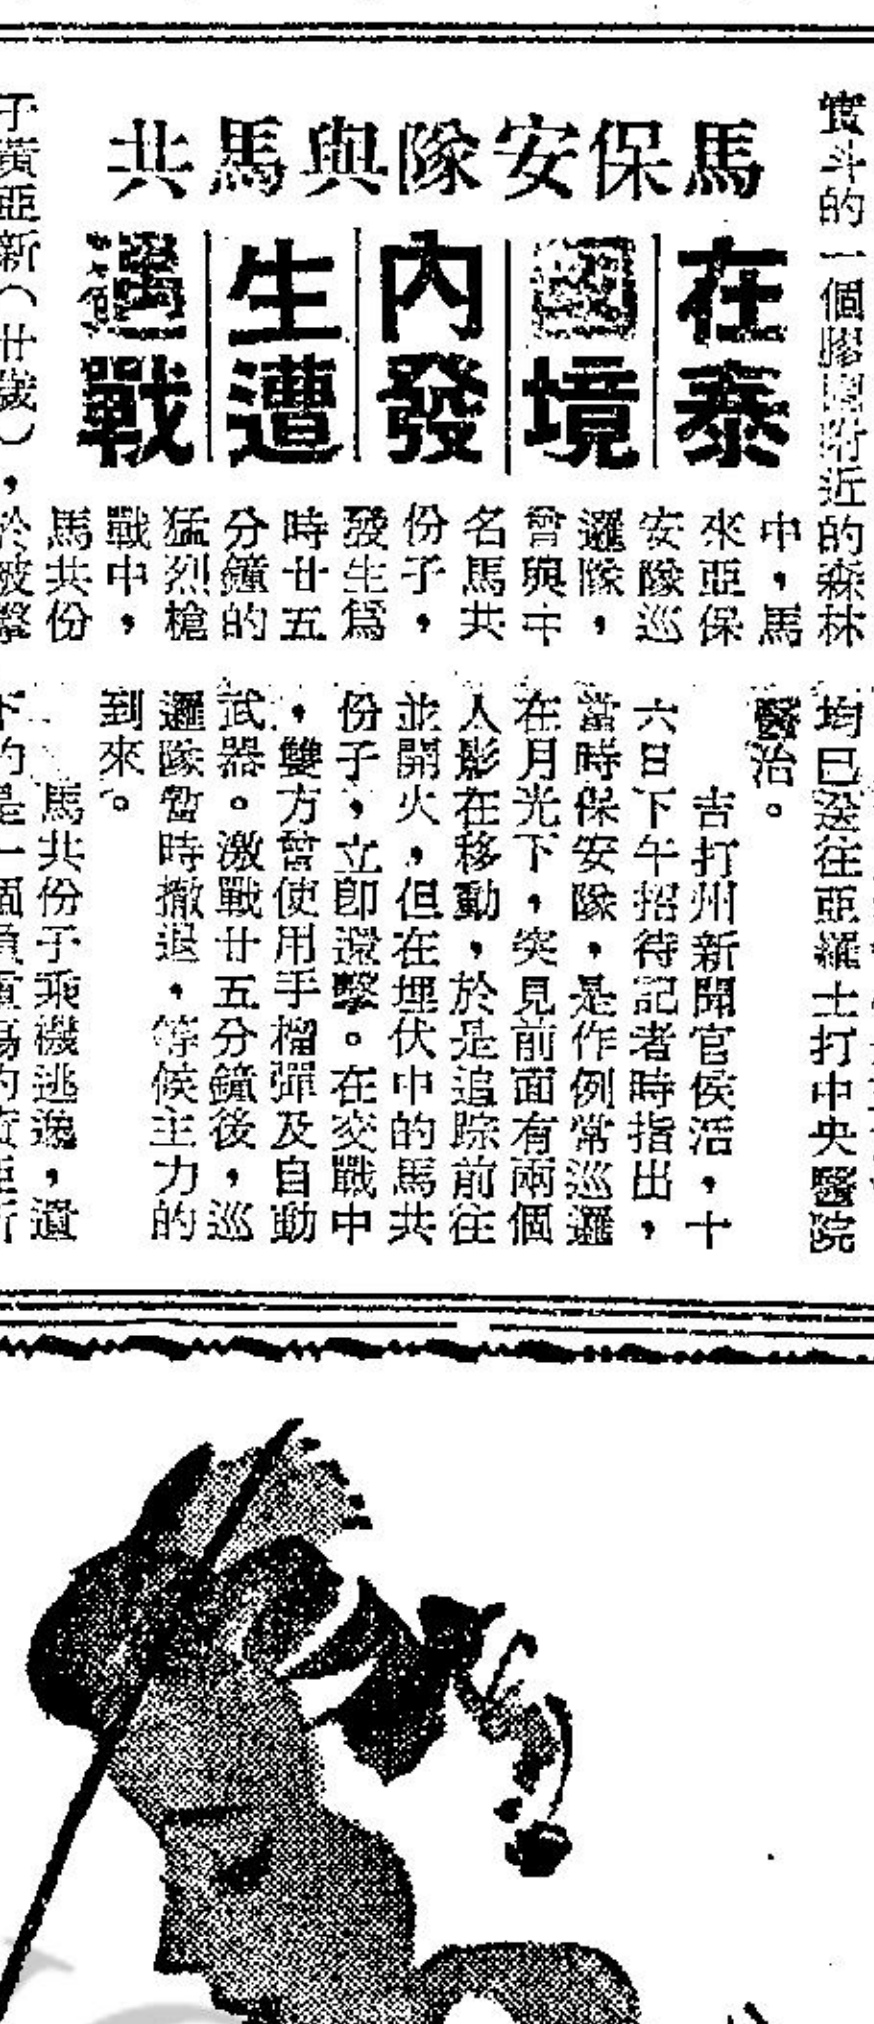 馬保安隊與馬共
在泰
國境
內發
生遭
遇戰
實斗的一個膠園附近的森林
中，馬
來亞保
安隊巡
邏隊，
曾與
名馬共
份子，
發生爲
時廿五
分鐘的
猛烈槍
戰中，
馬共份
子黃亞新（廿歲），於被擊
均已送往亞羅士打中央醫院
醫治。
吉打州新聞官侯活，十
六日下午招待記者時指出，
當時保安隊，是作例常巡邏
在月光下，突見前面有兩個
人影在移動，於是追踪前往
並開火，但在埋伏中的馬共
份子，立卽還擊。在交戰中
，雙方曾使用手榴彈及自動
武器。激戰廿五分鐘後，巡
邏隊暫時撤退，等候主力的
到來。
馬共份子乘機逃逸，遺
下的是一個負重傷的黃亞新